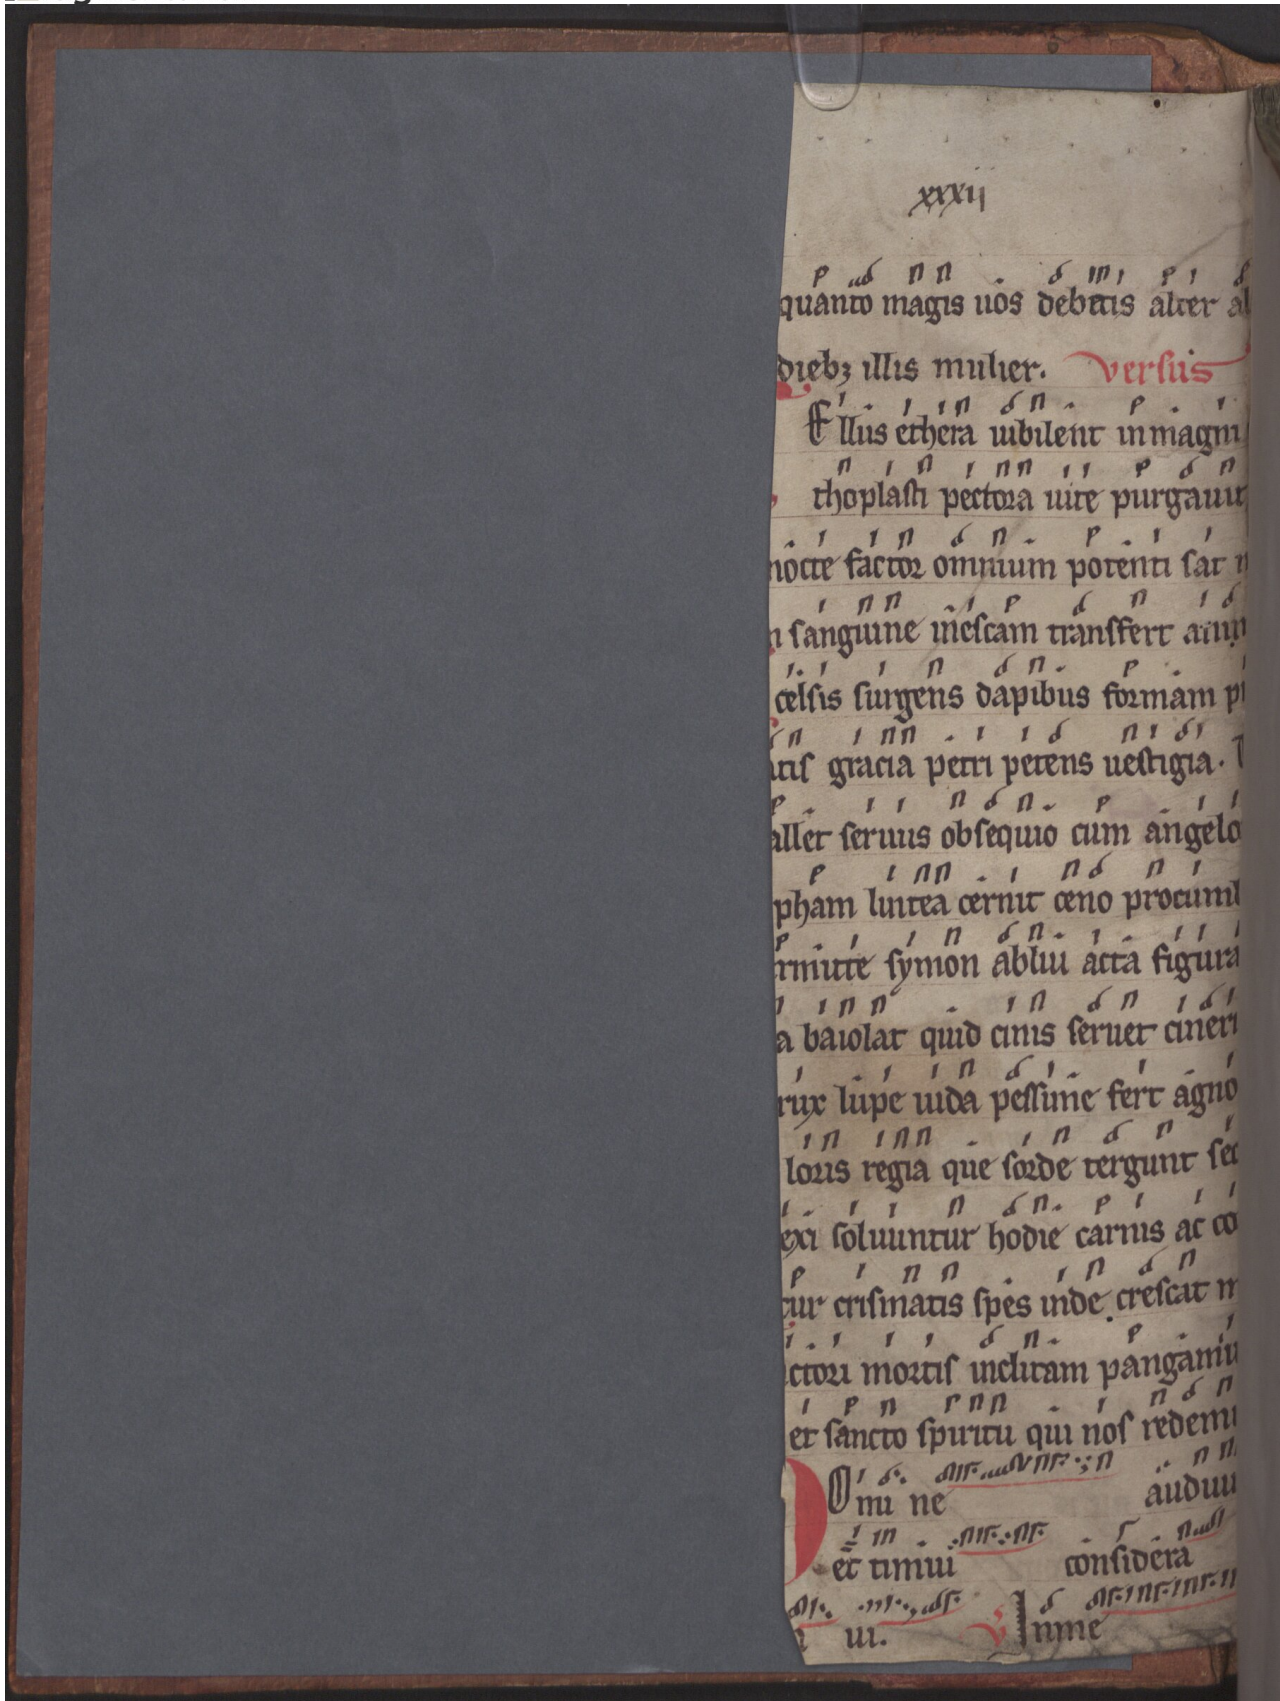 xxxii
quanto magis uos debetis alter al
dieb; illis mulier. versus
Ellus ethera iubilent in magni
thoplasti pectora uite purgauit
nocte factor omnium potenti sat
sanguine inescam transfert
celsis surgens dapibus formam
gracia petri petens uestigia.
allet seruus obsequio cum angelo
pham lintea cernit ceno procumb
rmitte symon ablui acta figura
a baiolat quid cinis seruet cineri
rux lupe uida pessime fert agno
loris regia que sorde tergunt sec
exi soluuntur hodie carnis ac co
tur crismatis spes inde crescat
ctori mortis inclitam pangamu
et sancto spiritu qui nos redemi
Domi ne audiui
et timui considera
ui. V In me